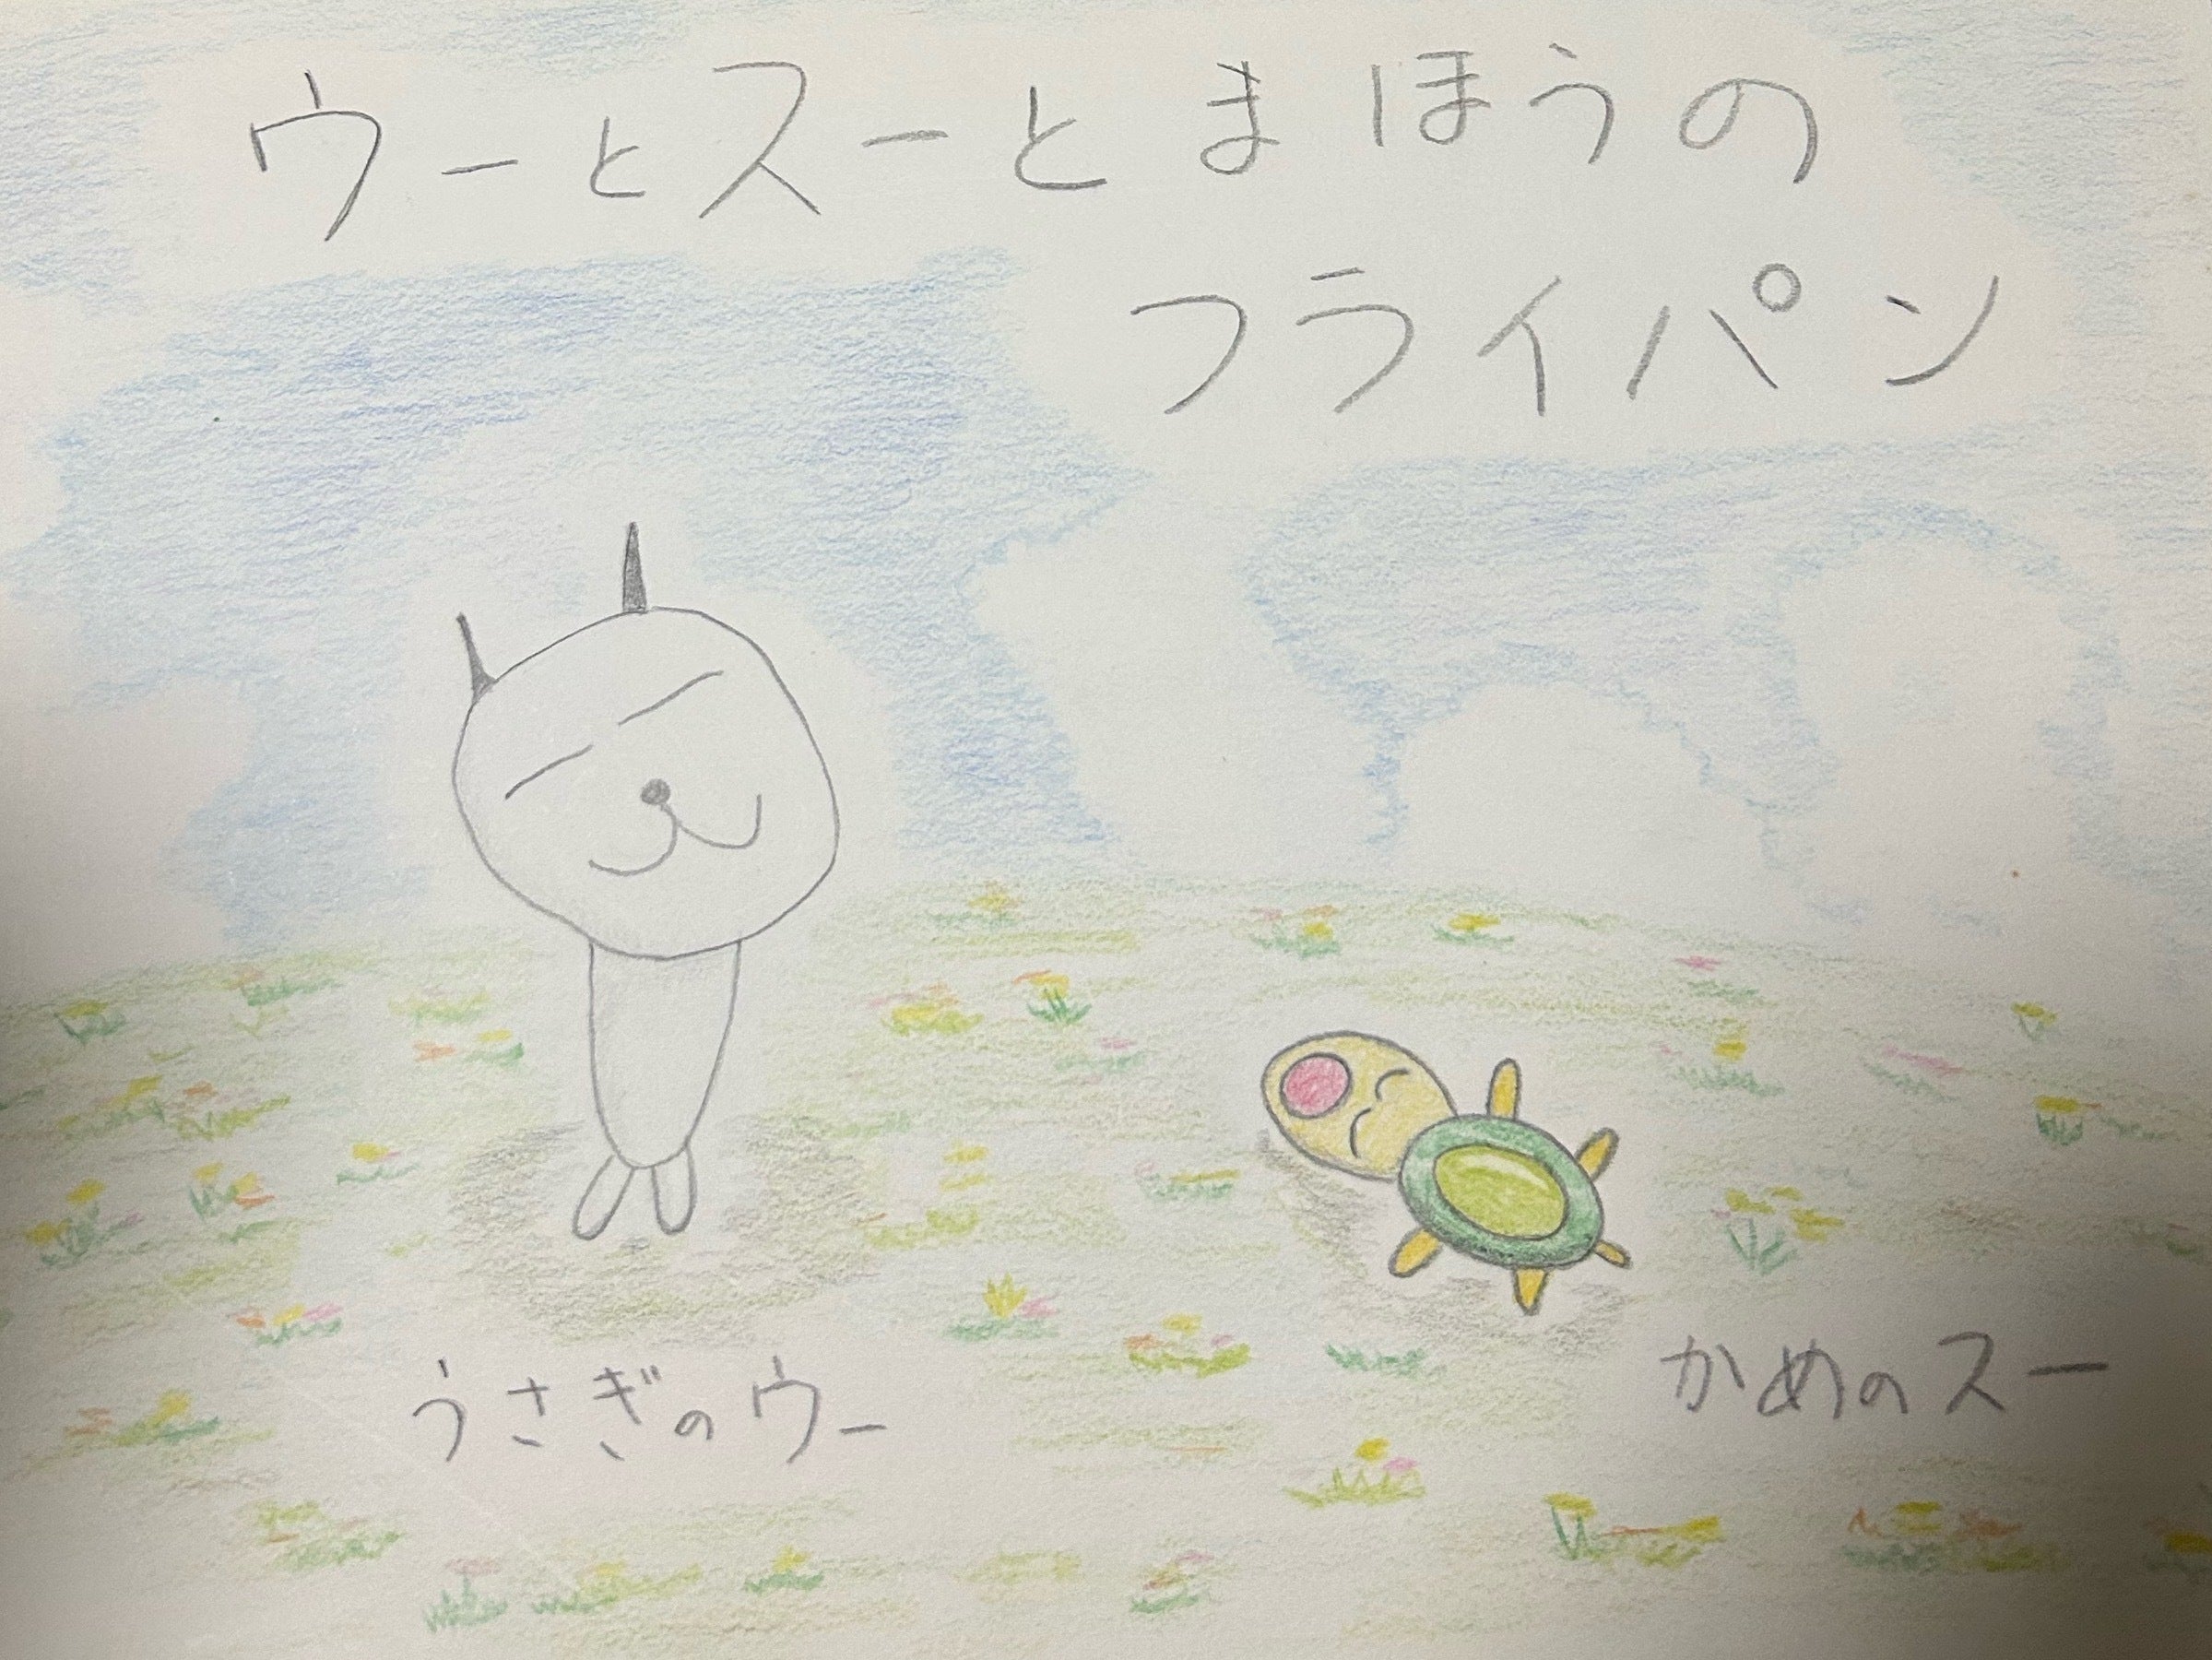 ウーとスーとまほうの
フライパン
うさぎのウー
かめのスー